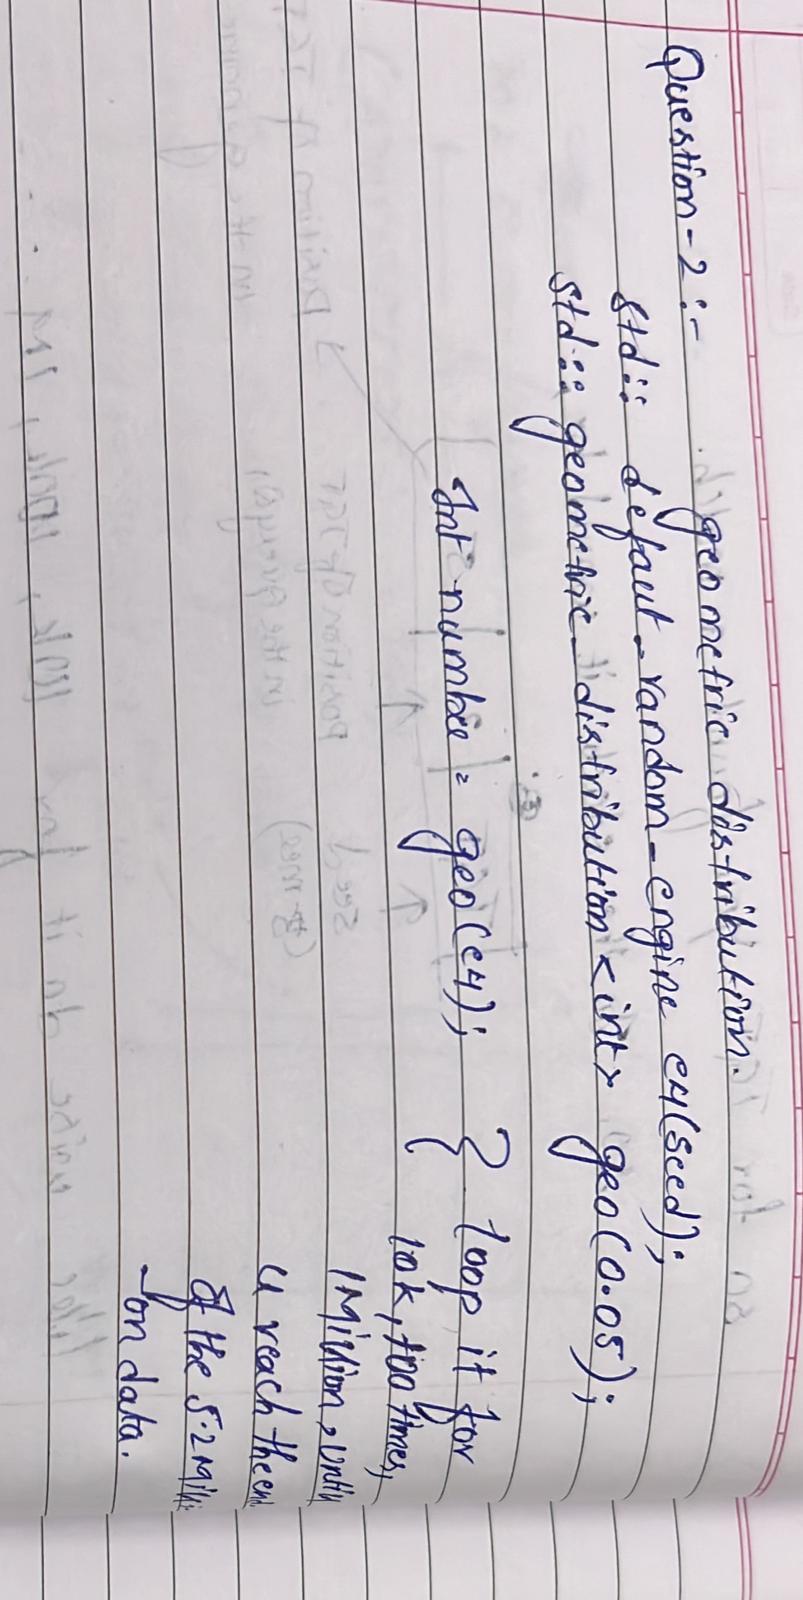 Question-2 :- geometric distribution.
std:: defaut_random_engine e4(seed);
std:: geometric_distribution <int> geo(0.05);
Int number = geo(e4); } loop it for
10k, times,
1Million, until
u reach the end
of the 5.2 Milli
on data.